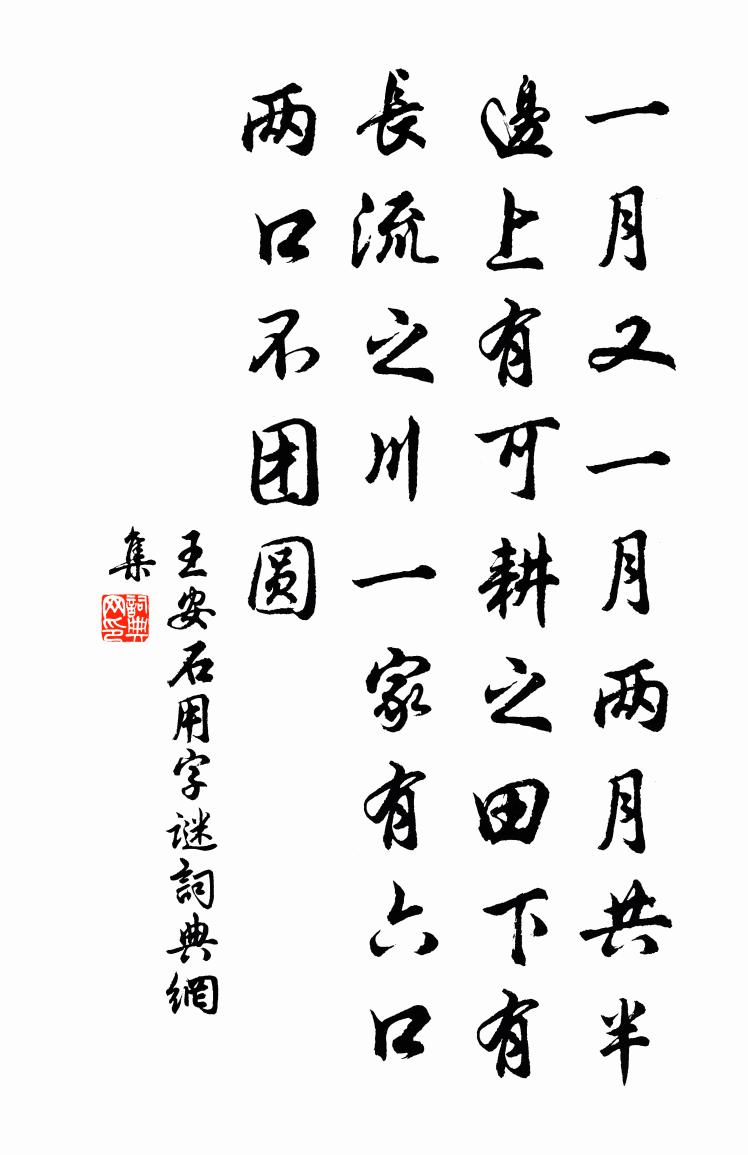 一月又一月两月共半
邊上有可耕之田下有
長流之川一家有六口
两口不团圆
王安石用字谜詞典網
集
詞典
网印